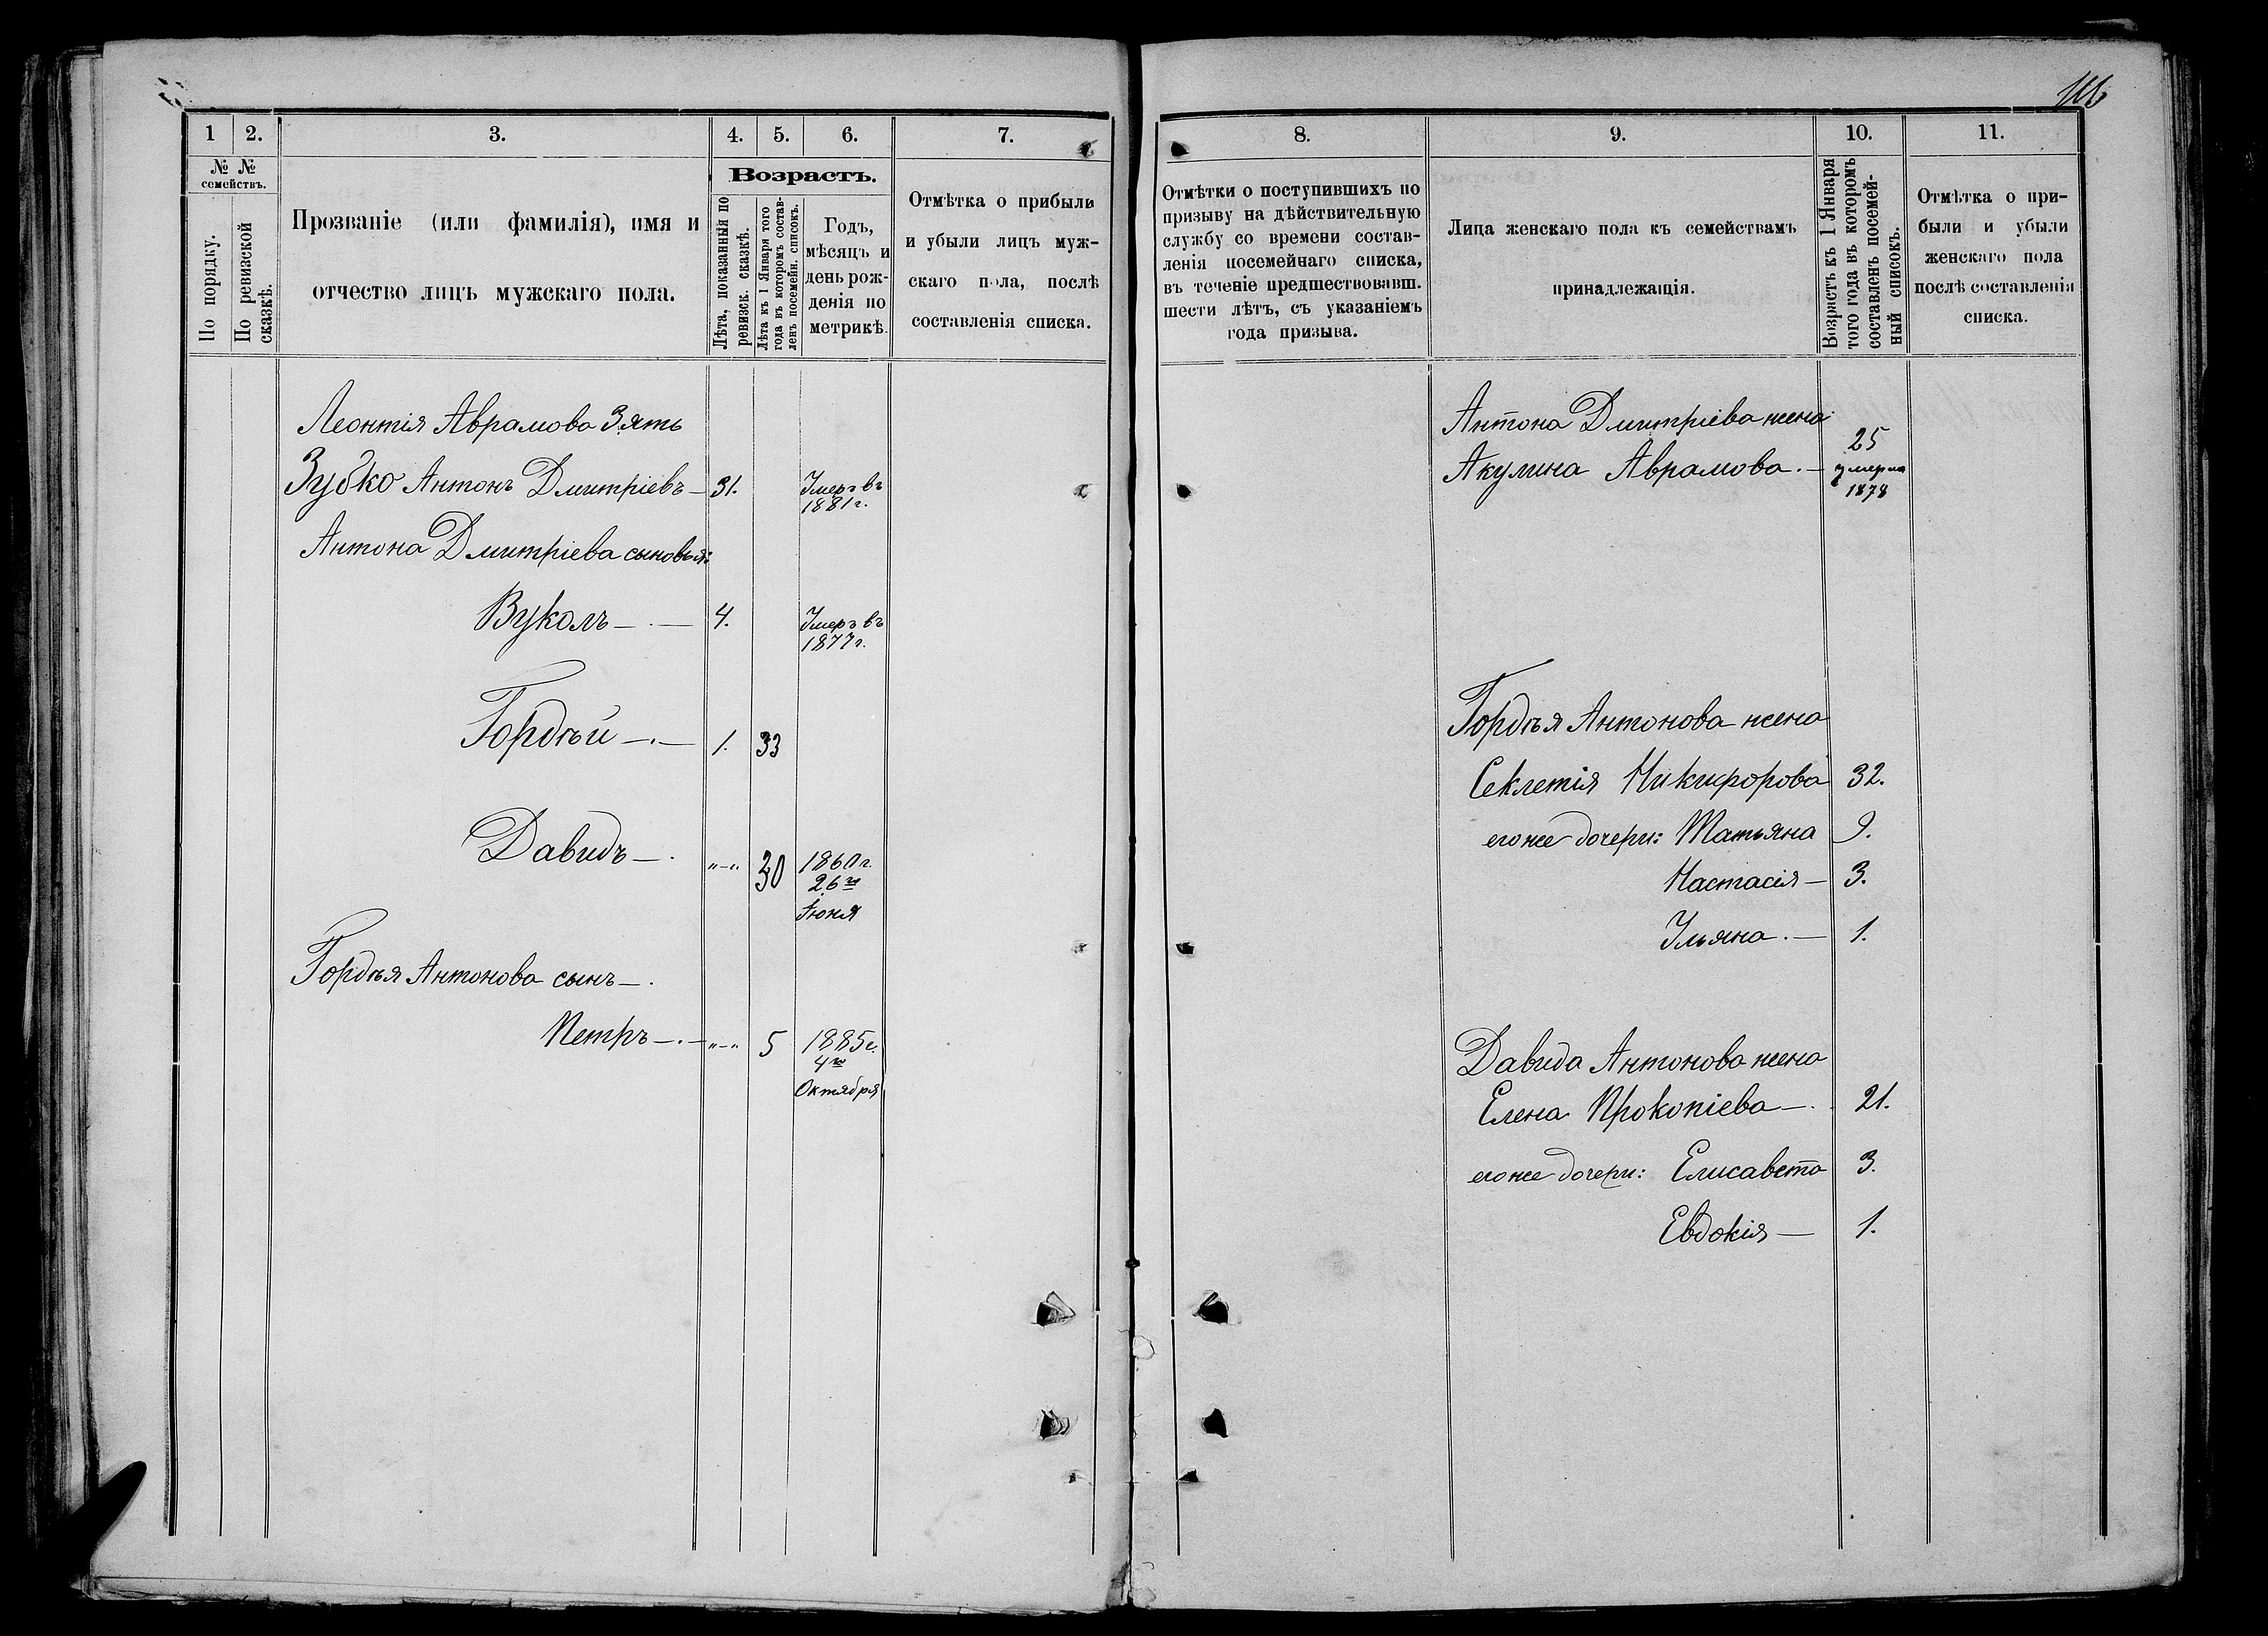 1 2. 3. 4. 5. 6. 7.
№ № семействъ.
По порядку.
По ревизской сказкѣ.
Прозваніе (или фамилія), имя и
отчество лицъ мужскаго пола.
Возрастъ.
Лѣта, показанныя по
ревизск. сказкѣ.
Лѣта къ 1 Января того
года въ которомъ состав-
ленъ посемейн. списокъ.
Годъ,
мѣсяцъ и
день рож-
денія по
метрикѣ.
Отмѣтка о прибыли
и убыли лицъ муж-
скаго пола, послѣ
составленія списка.
Леонтія Аврамова Зять
Зубко Антонъ Дмитріевъ — 31. Умеръ въ
1881 г.
Антона Дмитріева сыновья:
Вуколъ — . — 4. Умеръ въ
1877 г.
Гордѣй — . — 1. 33
Давидъ — . „—„ 30 1860 г.
26го
Іюня
Гордѣя Антонова сынъ — .
Петръ — . — „—„ 5 1885 г.
4го
Октября
8. 9. 10. 11.
Отмѣтки о поступившихъ по
призыву на дѣйствительную
службу со времени состав-
ленія посемейнаго списка,
въ теченіе предшествовавш.
шести лѣтъ, съ указаніемъ
года призыва.
Лица женскаго пола къ семействамъ
принадлежащія.
Возрастъ къ 1 Января
того года въ которомъ
составленъ посемей-
ный списокъ.
Отмѣтка о при-
были и убыли
женскаго пола
послѣ составленія
списка.
Антона Дмитріева жена:
Акулина Аврамова . — 25
умерла
1878
Гордѣя Антонова жена
Секлетія Никифорова 32.
его же дочери: Татьяна 9.
Настасія — 3.
Ульяна . — 1.
Давида Антонова жена
Елена Прокопіева — . 21.
его же дочери: Елисавета 3.
Евдокія — 1.